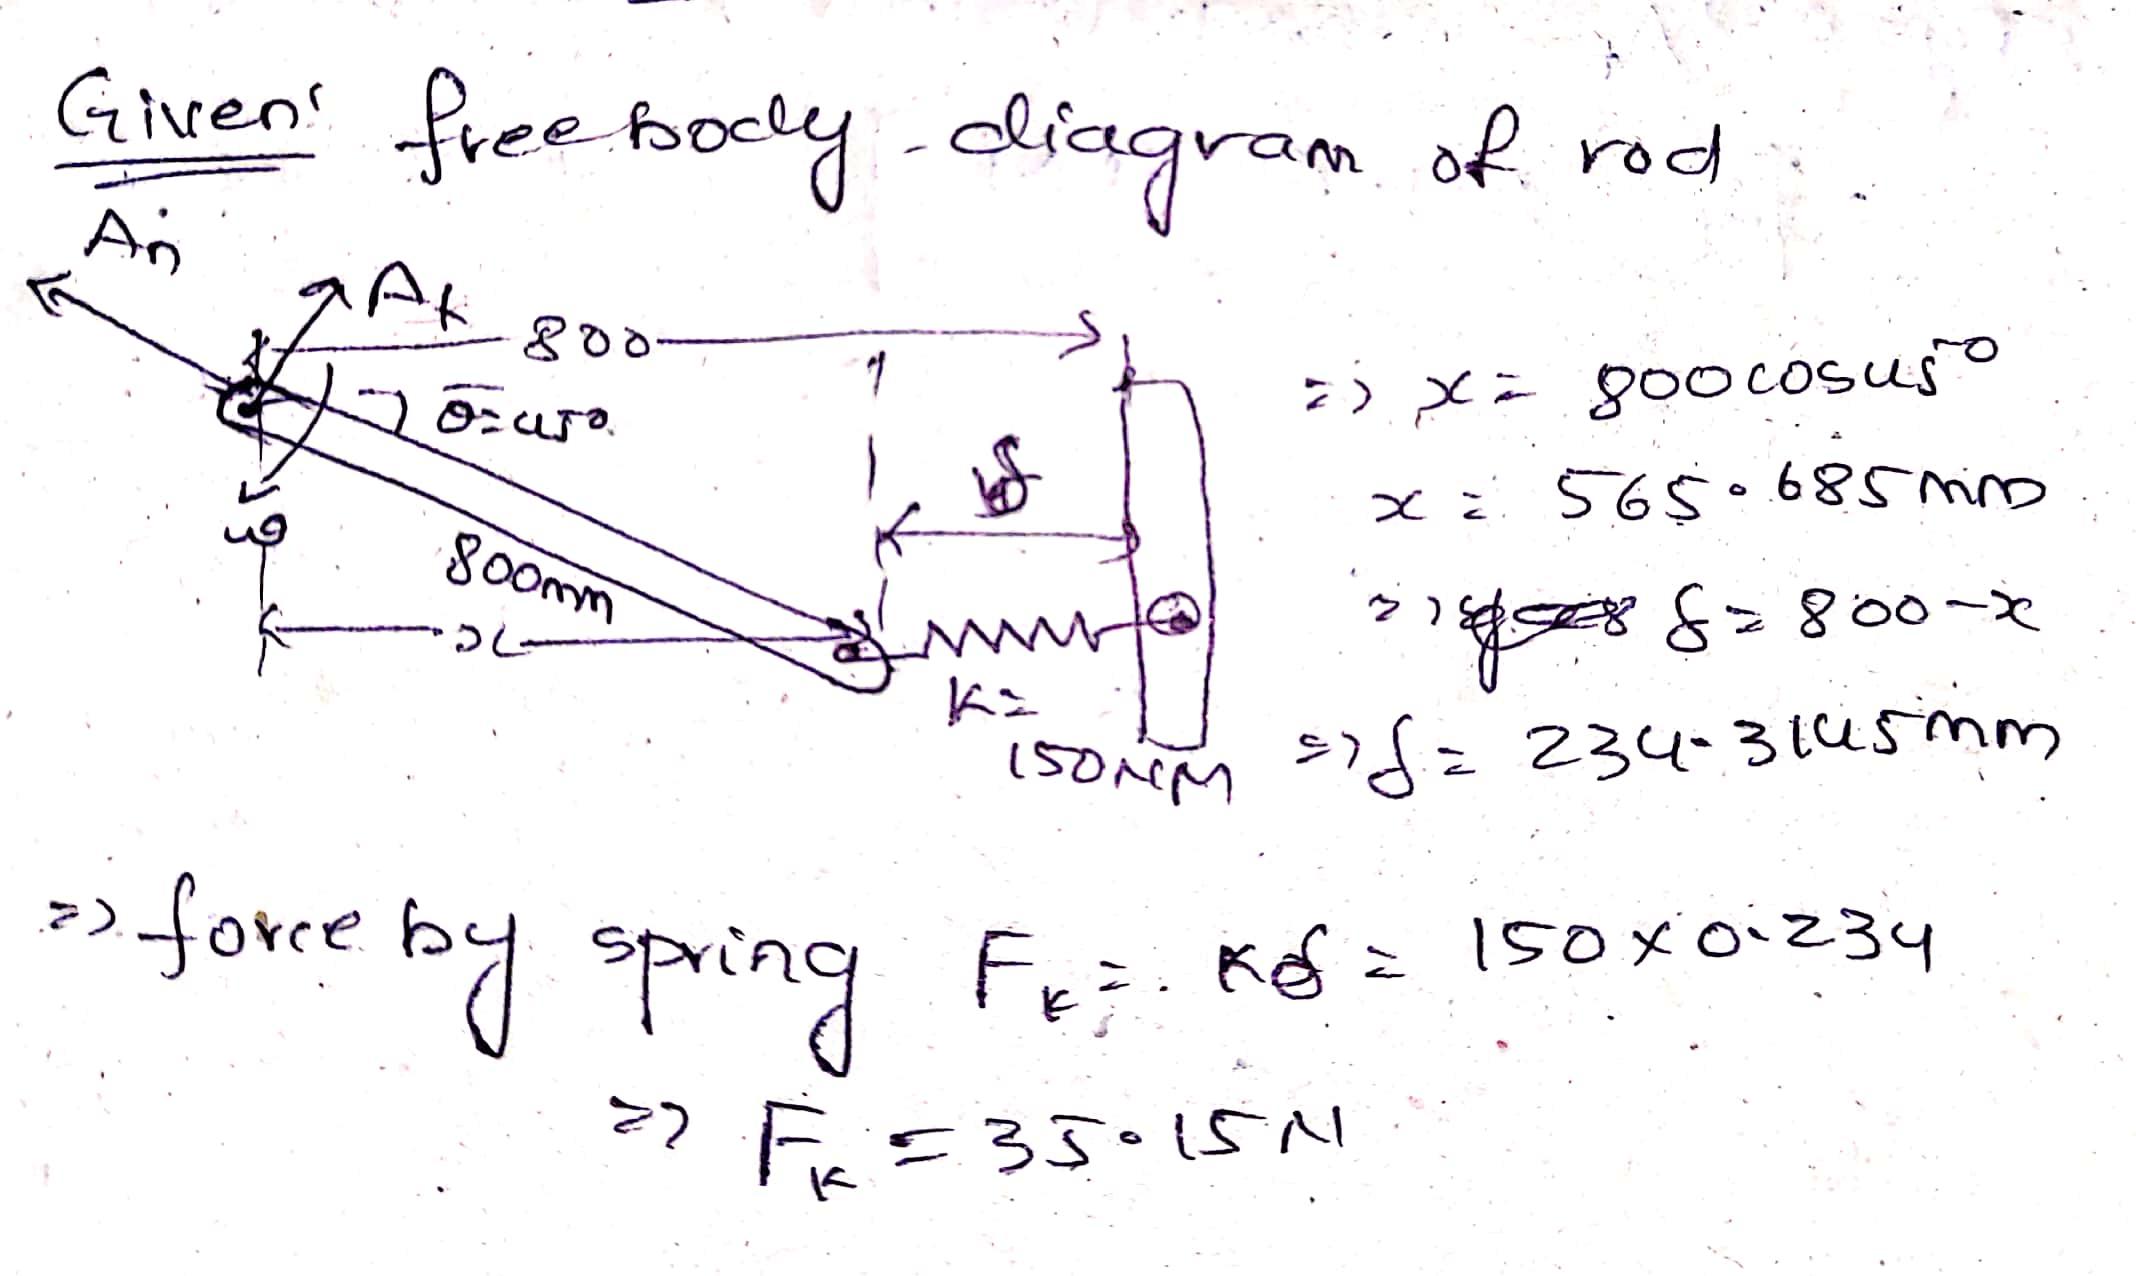 Given: free body diagram of rod
An
At
800
θ=45°
δ
ω
800mm
x
K=
150N/M
=> x = 800cos45°
x = 565.685mm
=> δ = 800-x
=> δ = 234.3145mm
=> force by spring Fk = Kδ = 150x0.234
=> Fk = 35.15N